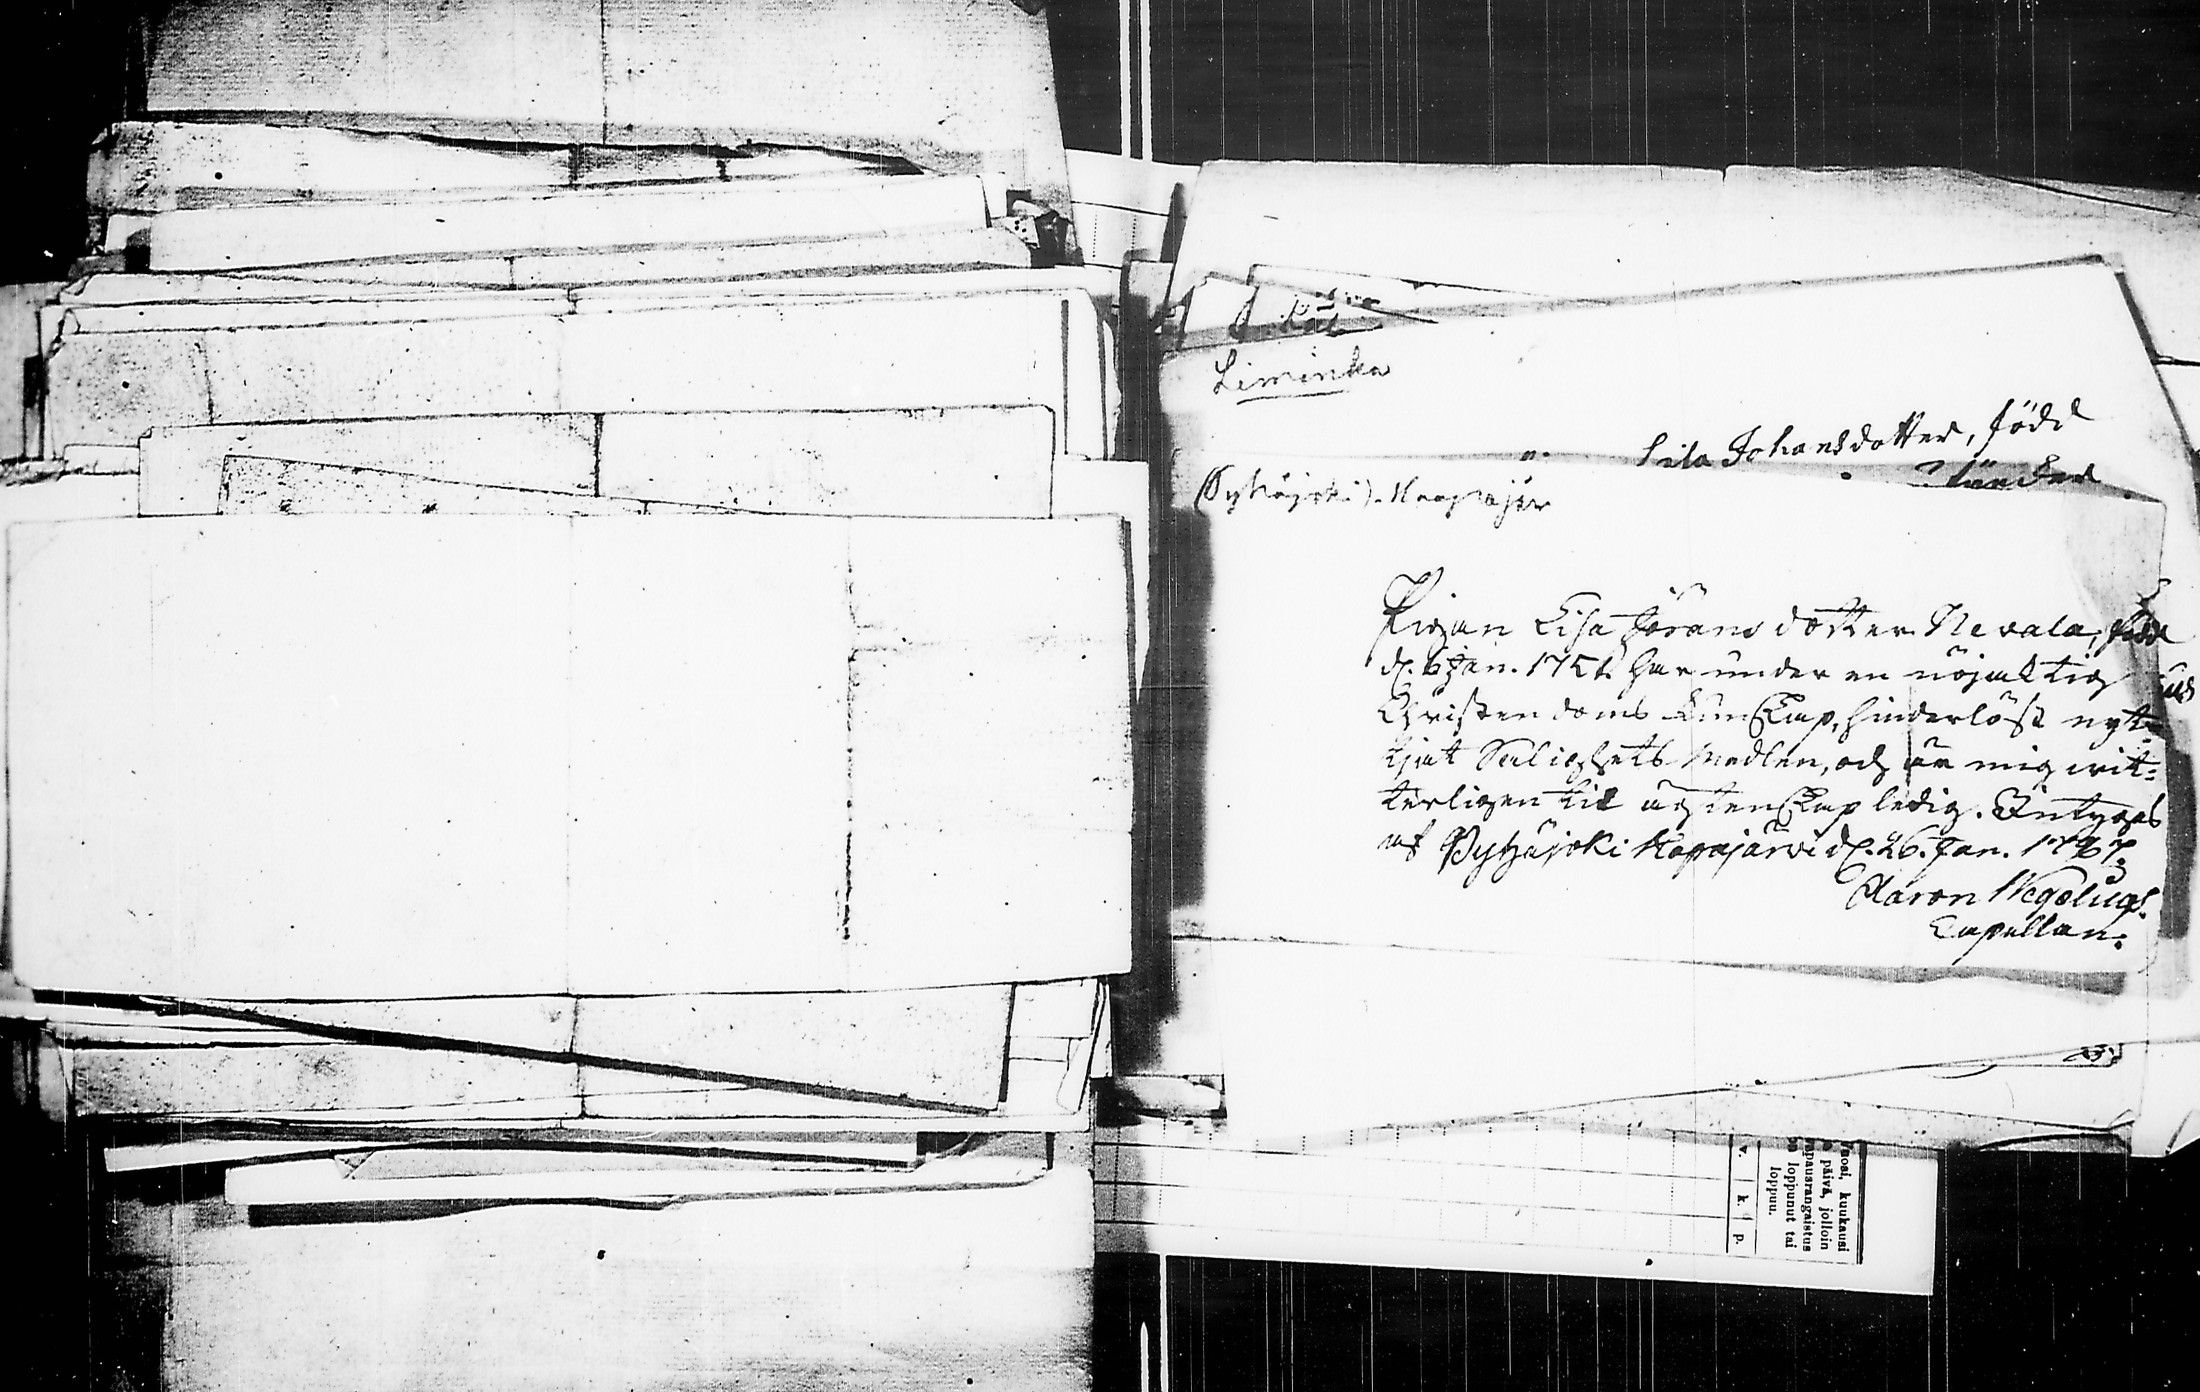 Liminka
Lisa Johansdotter, född
under
(Pyhäjoki). Haapajär
Pigan Lisa Jörans dotter Nevala, född
d. 6 Jan. 175 har under en nöjaktig
Christendoms kunskap, hinderlöst nytt-
tjat Salighets Medlen, och är mig wit-
terligen til ägtenskap ledig. Intygas
af Pyhäjoki Hapajärwi d. 26. Jan. 178
Aaron Wegelius.
Capellan.
uosi, kuukausi
päivä, jolloin
apausrangaistus
loppunut tai
loppuu.
v. k. p.